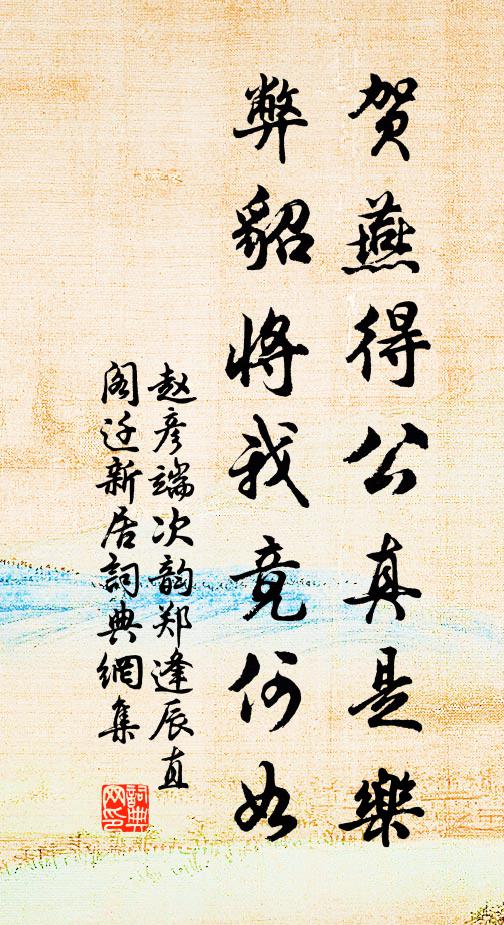 贺燕得公真是樂
弊貂將我竟何如
赵彦端次韵郑逢辰直
阁迁新居詞典網集
詞典网印